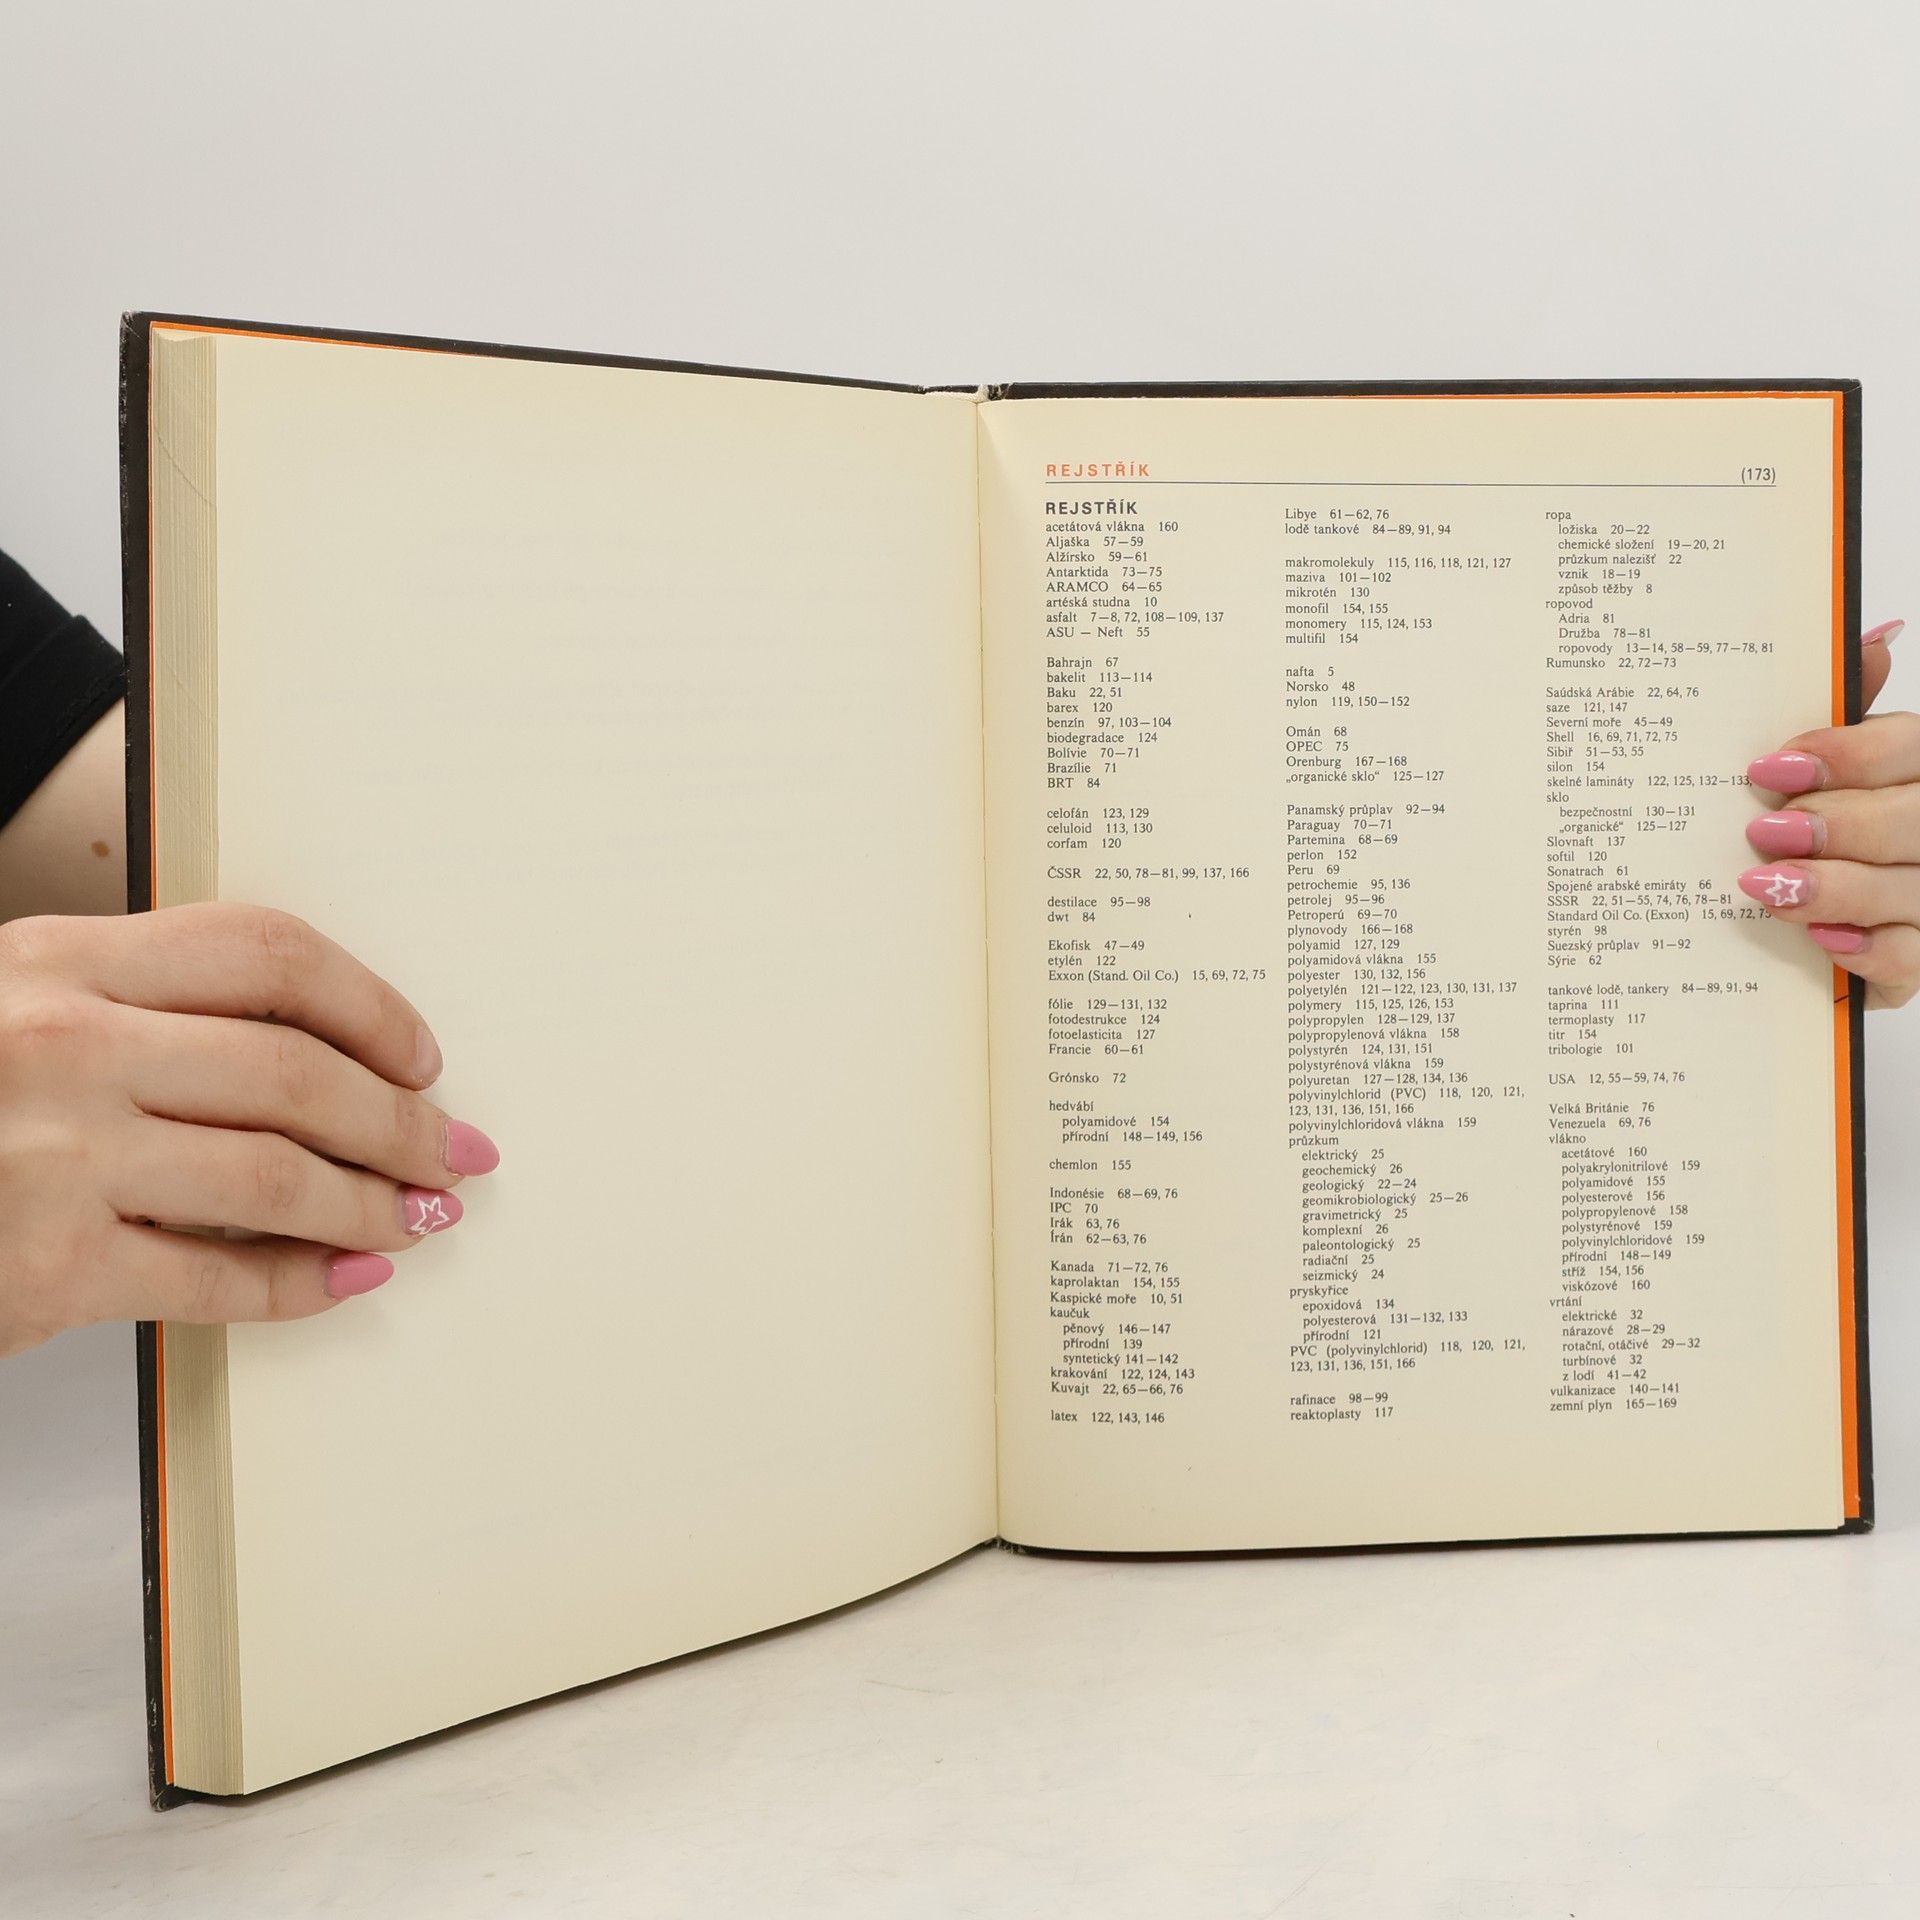 REJSTŘÍK
(173)
REJSTŘÍK
acetátová vlákna 160
Aljaška 57—59
Alžírsko 59—61
Antarktida 73—75
ARAMCO 64—65
artéská studna 10
asfalt 7—8, 72, 108—109, 137
ASU — Neft 55
Bahrajn 67
bakelit 113—114
Baku 22, 51
barex 120
benzín 97, 103—104
biodegradace 124
Bolívie 70—71
Brazílie 71
BRT 84
celofán 123, 129
celuloid 113, 130
corfam 120
ČSSR 22, 50, 78—81, 99, 137, 166
destilace 95—98
dwt 84
Ekofisk 47—49
etylén 122
Exxon (Stand. Oil Co.) 15, 69, 72, 75
fólie 129—131, 132
fotodestrukce 124
fotoelasticita 127
Francie 60—61
Grónsko 72
hedvábí
polyamidové 154
přírodní 148—149, 156
chemlon 155
Indonésie 68—69, 76
IPC 70
Irák 63, 76
Írán 62—63, 76
Kanada 71—72, 76
kaprolaktan 154, 155
Kaspické moře 10, 51
kaučuk
pěnový 146—147
přírodní 139
syntetický 141—142
krakování 122, 124, 143
Kuvajt 22, 65—66, 76
latex 122, 143, 146
Libye 61—62, 76
lodě tankové 84—89, 91, 94
makromolekuly 115, 116, 118, 121, 127
maziva 101—102
mikrotén 130
monofil 154, 155
monomery 115, 124, 153
multifil 154
nafta 5
Norsko 48
nylon 119, 150—152
Omán 68
OPEC 75
Orenburg 167—168
„organické sklo“ 125—127
Panamský průplav 92—94
Paraguay 70—71
Partemina 68—69
perlon 152
Peru 69
petrochemie 95, 136
petrolej 95—96
Petroperú 69—70
plynovody 166—168
polyamid 127, 129
polyamidová vlákna 155
polyester 130, 132, 156
polyetylén 121—122, 123, 130, 131, 137
polymery 115, 125, 126, 153
polypropylen 128—129, 137
polypropylenová vlákna 158
polystyrén 124, 131, 151
polystyrénová vlákna 159
polyuretan 127—128, 134, 136
polyvinylchlorid (PVC) 118, 120, 121,
123, 131, 136, 151, 166
polyvinylchloridová vlákna 159
průzkum
elektrický 25
geochemický 26
geologický 22—24
geomikrobiologický 25—26
gravimetrický 25
komplexní 26
paleontologický 25
radiační 25
seizmický 24
pryskyřice
epoxidová 134
polyesterová 131—132, 133
přírodní 121
PVC (polyvinylchlorid) 118, 120, 121,
123, 131, 136, 151, 166
rafinace 98—99
reaktoplasty 117
ropa
ložiska 20—22
chemické složení 19—20, 21
průzkum nalezišť 22
vznik 18—19
způsob těžby 8
ropovod
Adria 81
Družba 78—81
ropovody 13—14, 58—59, 77—78, 81
Rumunsko 22, 72—73
Saúdská Arábie 22, 64, 76
saze 121, 147
Severní moře 45—49
Shell 16, 69, 71, 72, 75
Sibiř 51—53, 55
silon 154
skelné lamináty 122, 125, 132—133,
sklo
bezpečnostní 130—131
„organické“ 125—127
Slovnaft 137
softil 120
Sonatrach 61
Spojené arabské emiráty 66
SSSR 22, 51—55, 74, 76, 78—81
Standard Oil Co. (Exxon) 15, 69, 72, 75
styrén 98
Suezský průplav 91—92
Sýrie 62
tankové lodě, tankery 84—89, 91, 94
taprina 111
termoplasty 117
titr 154
tribologie 101
USA 12, 55—59, 74, 76
Velká Británie 76
Venezuela 69, 76
vlákno
acetátové 160
polyakrylonitrilové 159
polyamidové 155
polyesterové 156
polypropylenové 158
polystyrénové 159
polyvinylchloridové 159
přírodní 148—149
stříž 154, 156
viskózové 160
vrtání
elektrické 32
nárazové 28—29
rotační, otáčivé 29—32
turbínové 32
z lodí 41—42
vulkanizace 140—141
zemní plyn 165—169